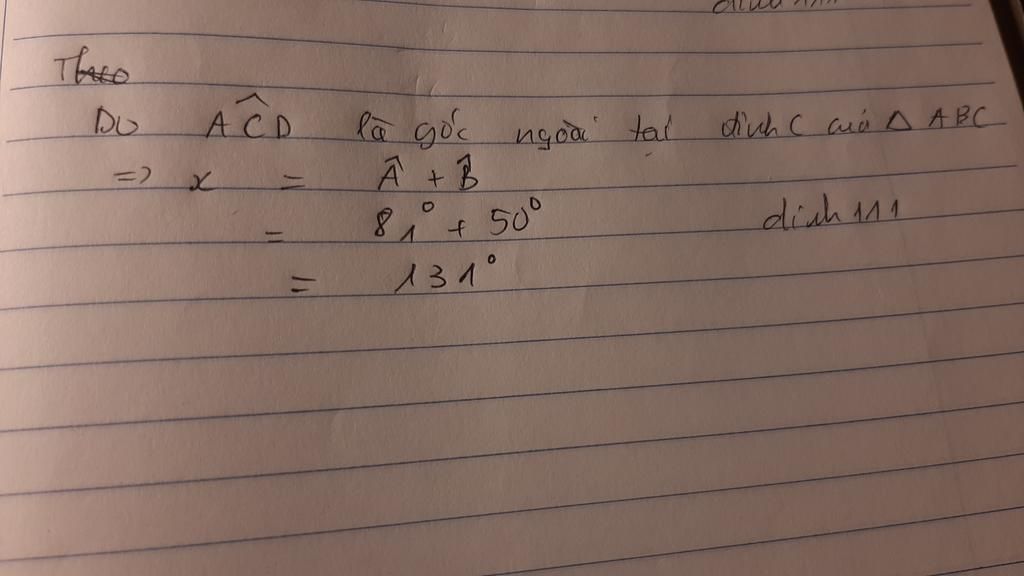 Theo
Do ACD là góc ngoài tại đỉnh C của Δ ABC
=> x = Â + B̂
= 81° + 50°
dinh 111
= 131°